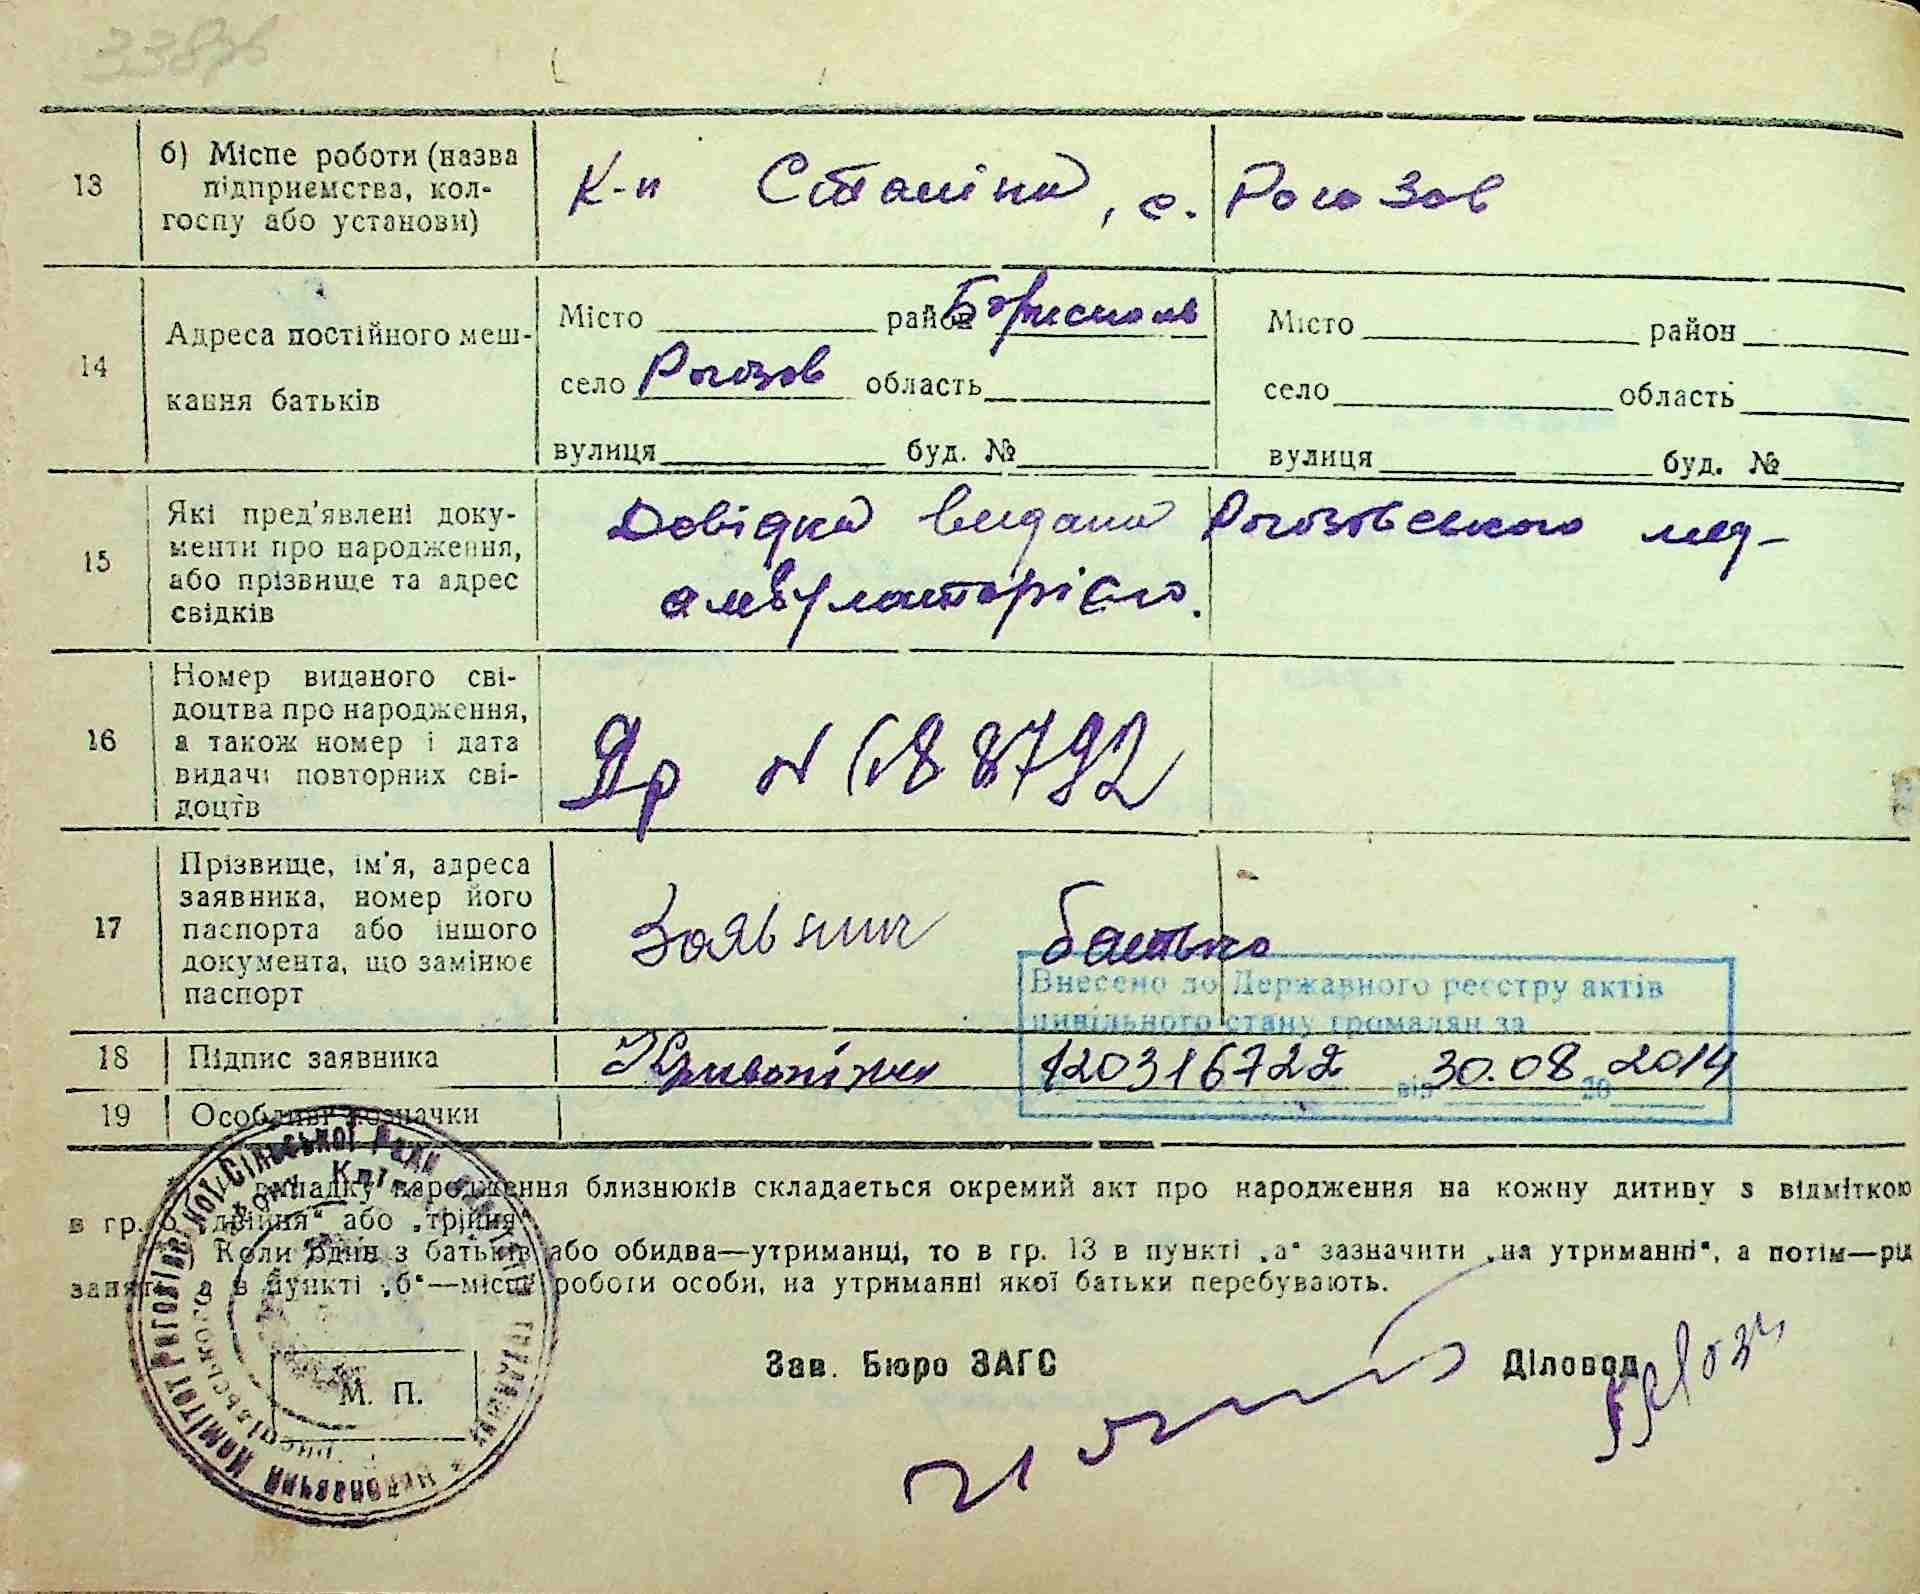 33876
13
б) Місце роботи (назва
підприємства, кол-
госпу або установи)
К-п Сталіна, с. Рогозов
14
Адреса постійного меш-
кання батьків
Місто район Бориспол
село Рогозов область
вулиця буд. №
Місто район
село область
вулиця буд. №
15
Які пред'явлені доку-
менти про народження,
або прізвище та адрес
свідків
Довідка видана Рогозовського мед-
амбулаторією.
16
Номер виданого сві-
доцтва про народження,
а також номер і дата
видачі повторних сві-
доцтв
№ 188792
17
Прізвище, ім'я, адреса
заявника, номер його
паспорта або іншого
документа, що замінює
паспорт
Заявник батько
Внесено до Державного реєстру актів
цивільного стану громадян за
120316722 від 30.08 2014
18
Підпис заявника
19
Особливі позначки
випадку народження близнюків складається окремий акт про народження на кожну дитину з відміткою
в гр. 6 „двійня" або „трійня"
Коли один з батьків або обидва—утриманці, то в гр. 13 в пункті „а" зазначити „на утриманні", а потім—рід
занять, а в пункті „б"—місце роботи особи, на утриманні якої батьки перебувають.
М. П.
Зав. Бюро ЗАГС
Діловод